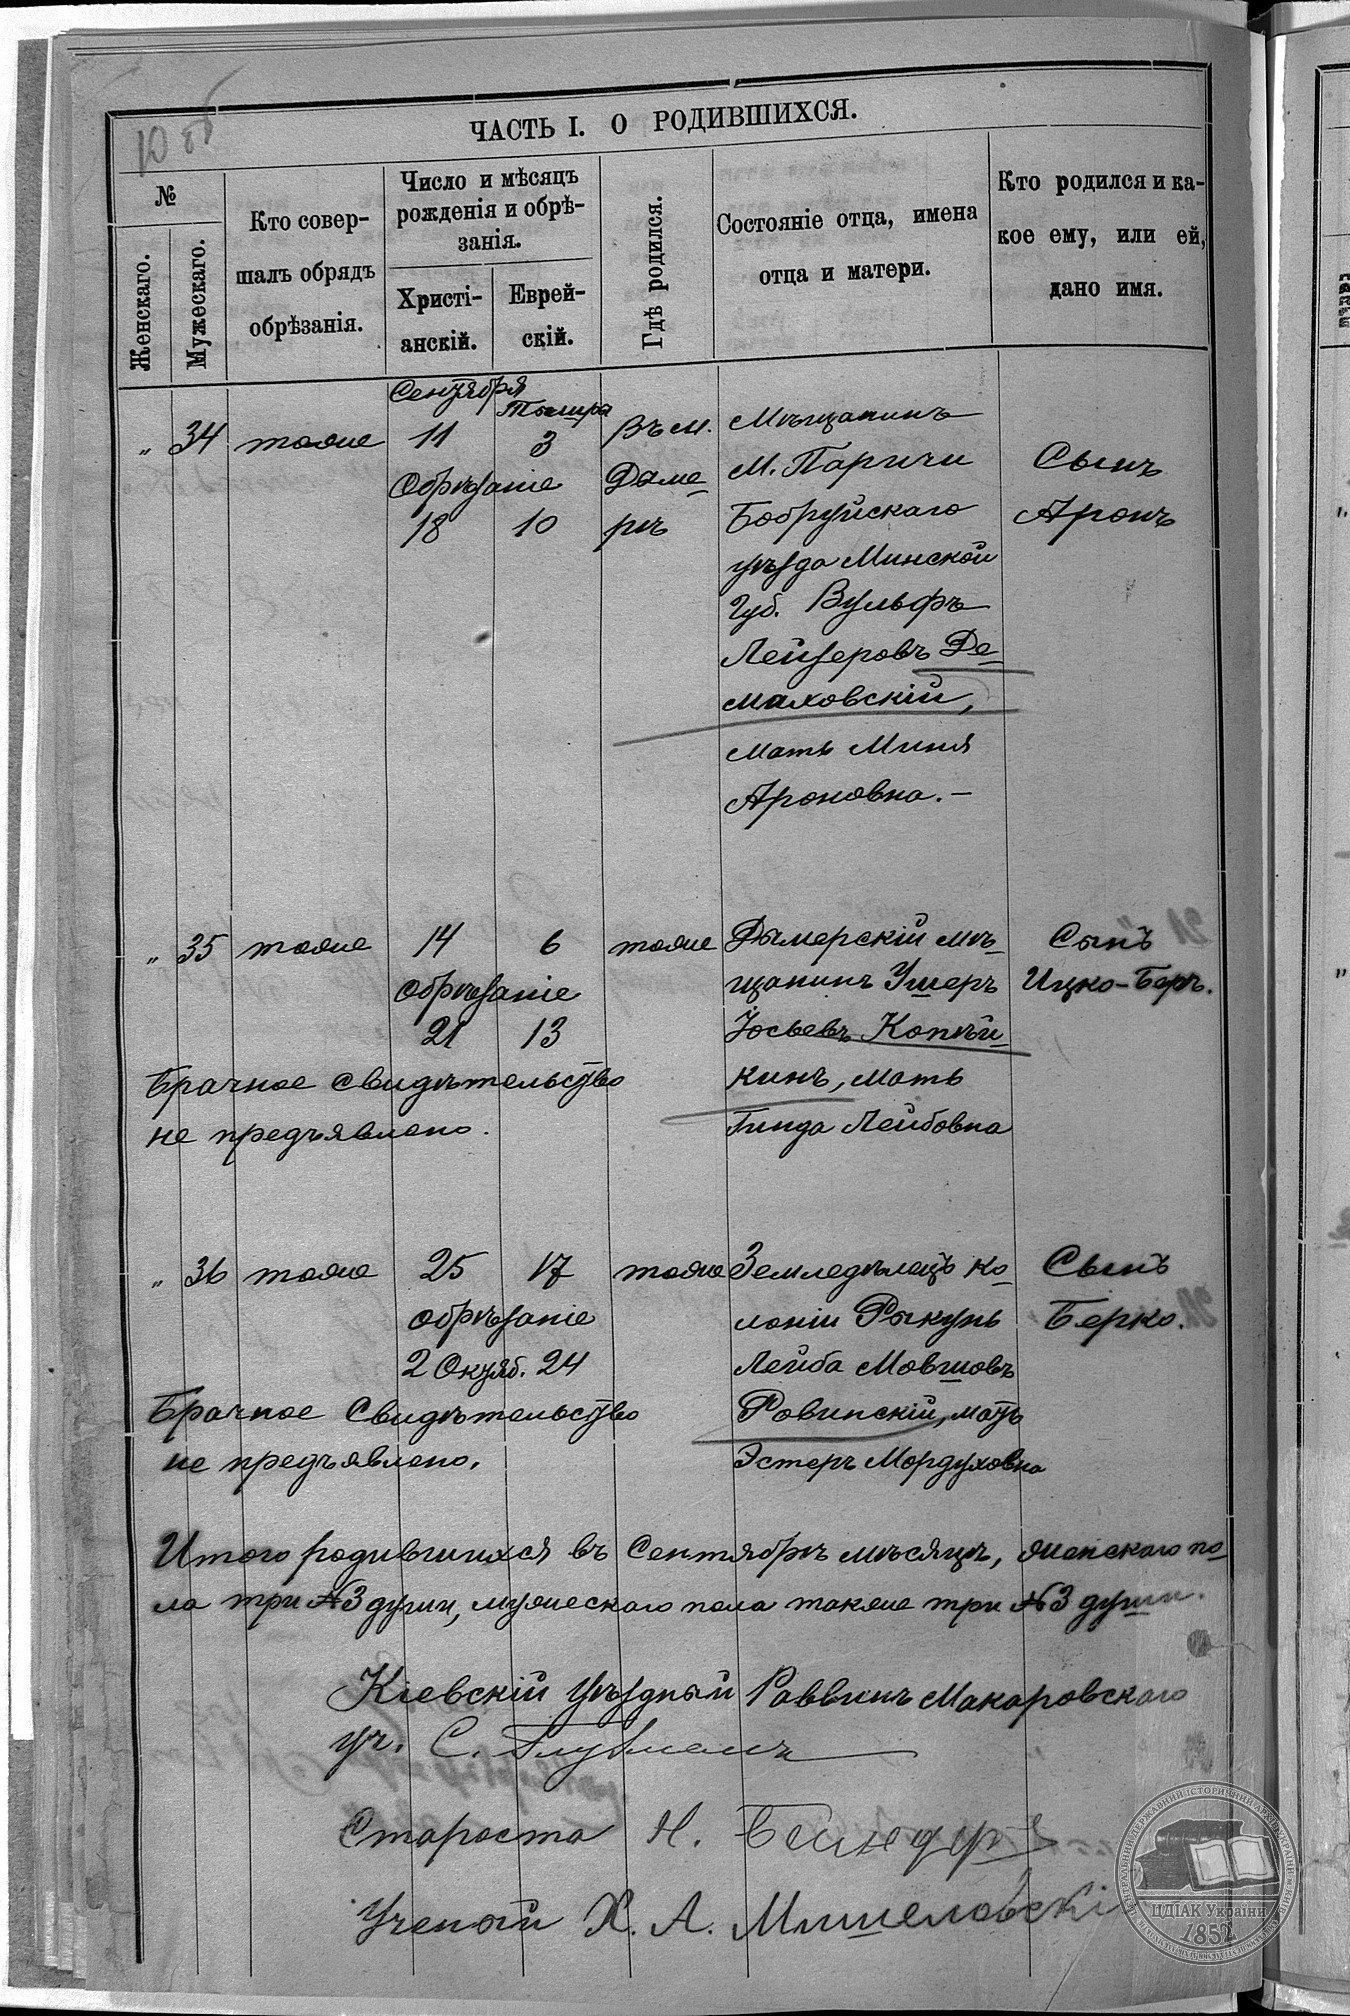 ЧАСТЬ I. О РОДИВШИХСЯ.
№
Женскаго.
Мужескаго.
Кто совер-
шалъ обрядъ
обрѣзанія.
Число и мѣсяцъ
рожденія и обрѣ-
занія.
Христі-
анскій.
Еврей-
скій.
Гдѣ родился.
Состояніе отца, имена
отца и матери.
Кто родился и ка-
кое ему, или ей,
дано имя.
„ 34 тоже
Сентября
11
Тишра
3
Обрѣзаніе
18 10
Въ м.
Дыме-
рѣ
Мѣщанинъ
М. Паричи
Бобруйскаго
уѣзда Минской
Губ. Вульфъ
Лейзеровъ Де-
маховскій,
мать Миня
Ароновна.—
Сынъ
Аронъ
„ 35 тоже 14 6 тоже
Обрѣзаніе
21 13
Брачное свидѣтельство
не предъявлено.
Дымерскій мѣ-
щанинъ Ушеръ
Іосьевъ Копѣй-
кинъ, мать
Гинда Лейбовна
Сынъ
Ицко-Беръ.
„ 36 тоже 25 17 тоже
Обрѣзаніе
2 Октяб. 24
Брачное Свидѣтельство
не предъявлено.
Земледѣлецъ ко-
лоніи Рыкунь
Лейба Мовшовъ
Ровинскій, мать
Эстеръ Мордуховна
Сынъ
Берко.
Итого родившихся въ Сентябрѣ мѣсяцѣ, женскаго по-
ла три № 3 души, мужескаго пола также три № 3 души.
Кіевскій Уѣздный Раввинъ Макаровскаго
уч. С.
Староста Н. Бейндеръ
Ученый Х. А.
ЦДІАК України
1852